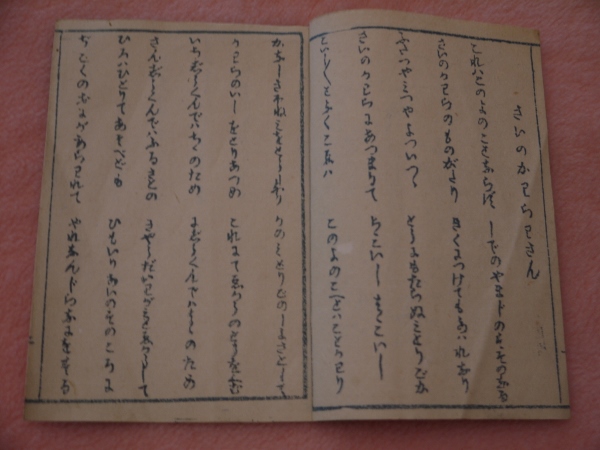 さいのかわらわさん
これハこのよのことならず しでのやまぢのすそのなる
さいのかわらのものがたり きくにつけてもあハれなり
ふたつやみつやよついつゝ とうにもたらぬみどりごが
さいのかわらにあつまりて ちゝこいしはゝこいし
こいし〱となくこゑハ このよのこゑとハことかわり
かなしさほねみをとふしなり かのみどりごのしよさとして
かわらのいしをとりあつめ これにてゑかうのとうをつむ
いちぢうくんでハちゝのため にぢうくんでハはゝのため
さんぢうくんでハふるさとの きやうだいわがみとゑかうして
ひるハひとりであそべども ひもいりあいのそのころは
ぢごくのおにがあらわれて やれなんぢらハなにをする